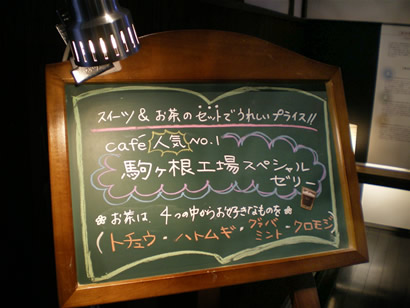 スイーツ & お茶のセットでうれしいプライス!!
café 人気 NO.1
駒ヶ根工場スペシャル
ゼリー
お茶は、4つの中からお好きなものを
(トチュウ・ハトムギ・グァバ・クロモジ)
ミント